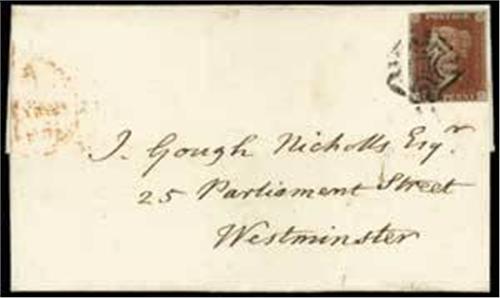 POSTAGE
PENNY
J. Gough Nicholls Esqr.
25 Parliament Street
Westminster